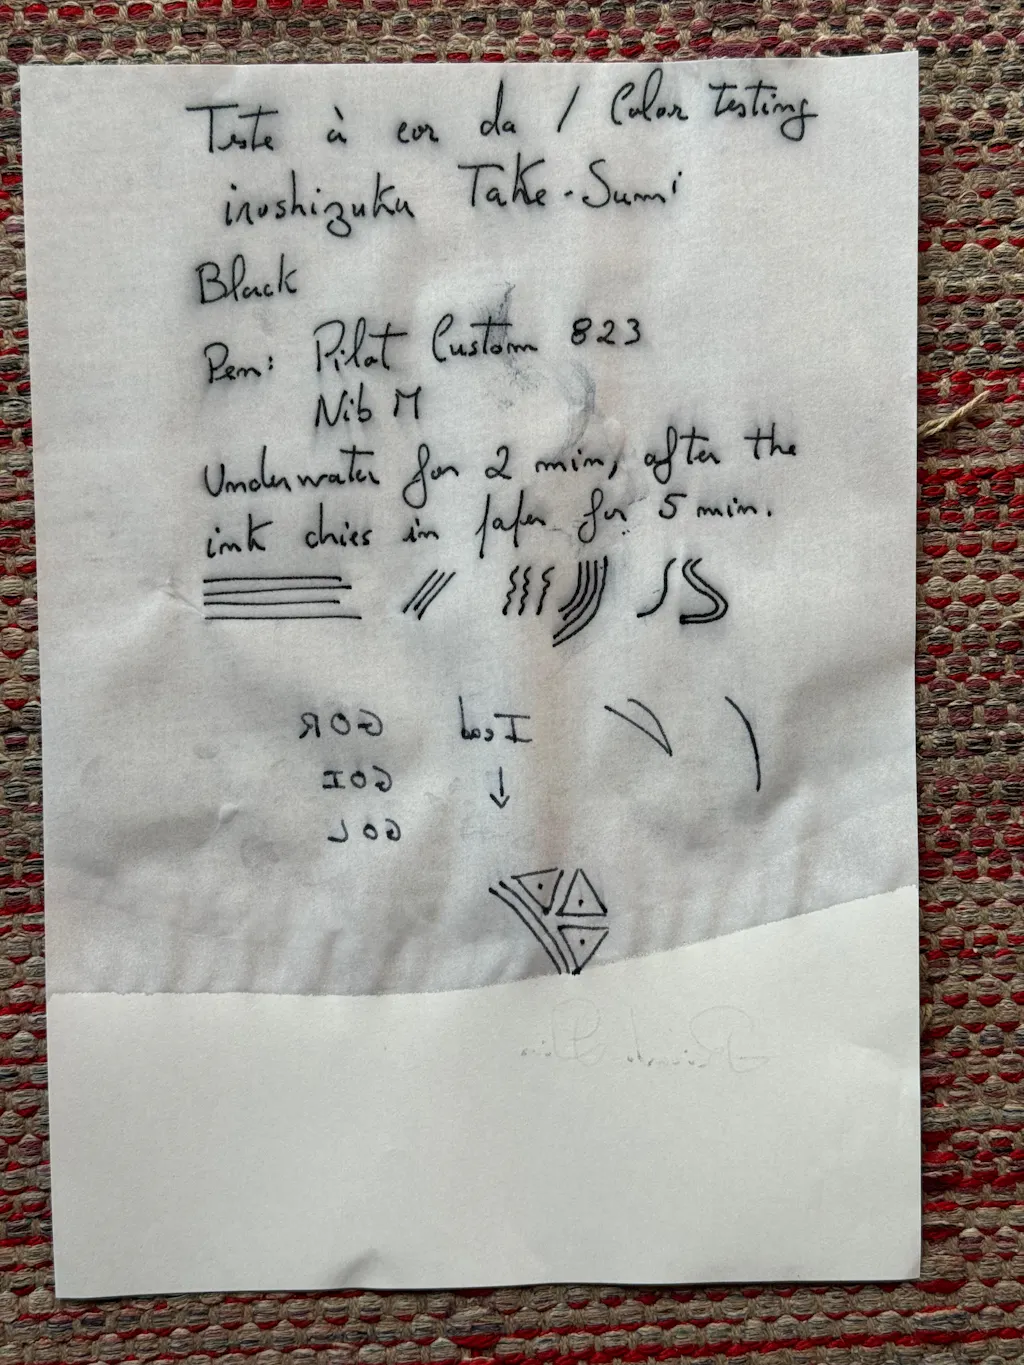 Teste à cor da / Color testing
iroshizuku Take-Sumi
Black
Pen: Pilot Custom 823
Nib M
Underwater for 2 min, after the
ink dries in paper for 5 min.
GOR
GOI
GOL